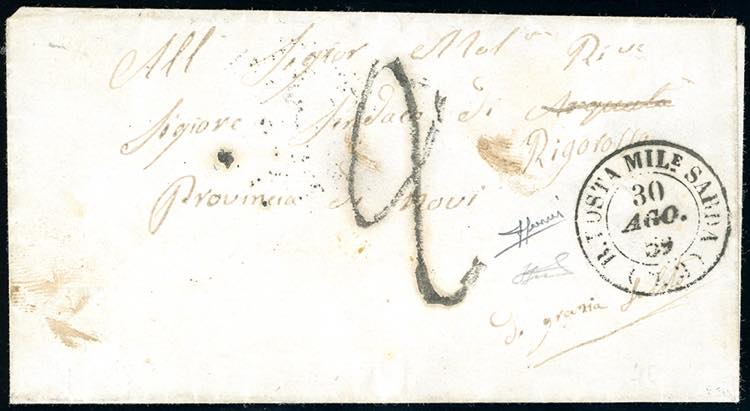 All Sigior Mol Rive
Sigiore Sindaco di Arquata
Rigoroso
Provincia di Novi
2
R. POSTA MIL.E SARDA
30
AGO.
59
di grazia